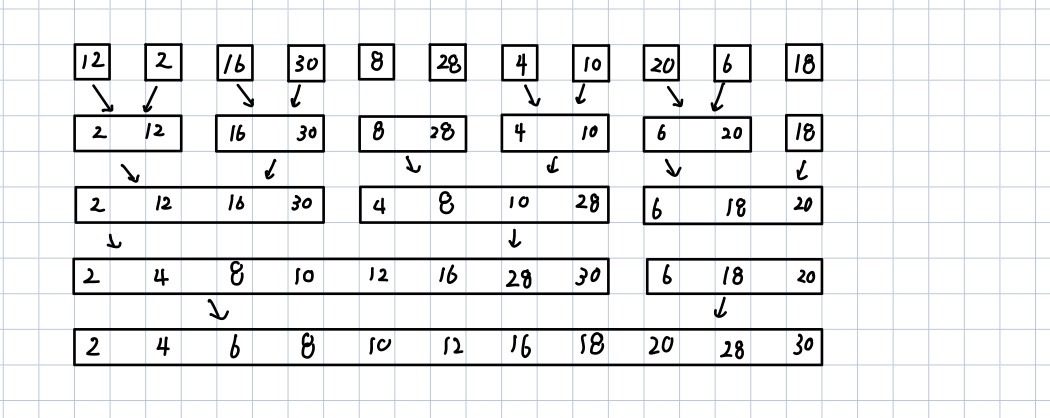 12 2 16 30 8 28 4 10 20 6 18
2 12 16 30 8 28 4 10 6 20 18
2 12 16 30 4 8 10 28 6 18 20
2 4 8 10 12 16 28 30 6 18 20
2 4 6 8 10 12 16 18 20 28 30